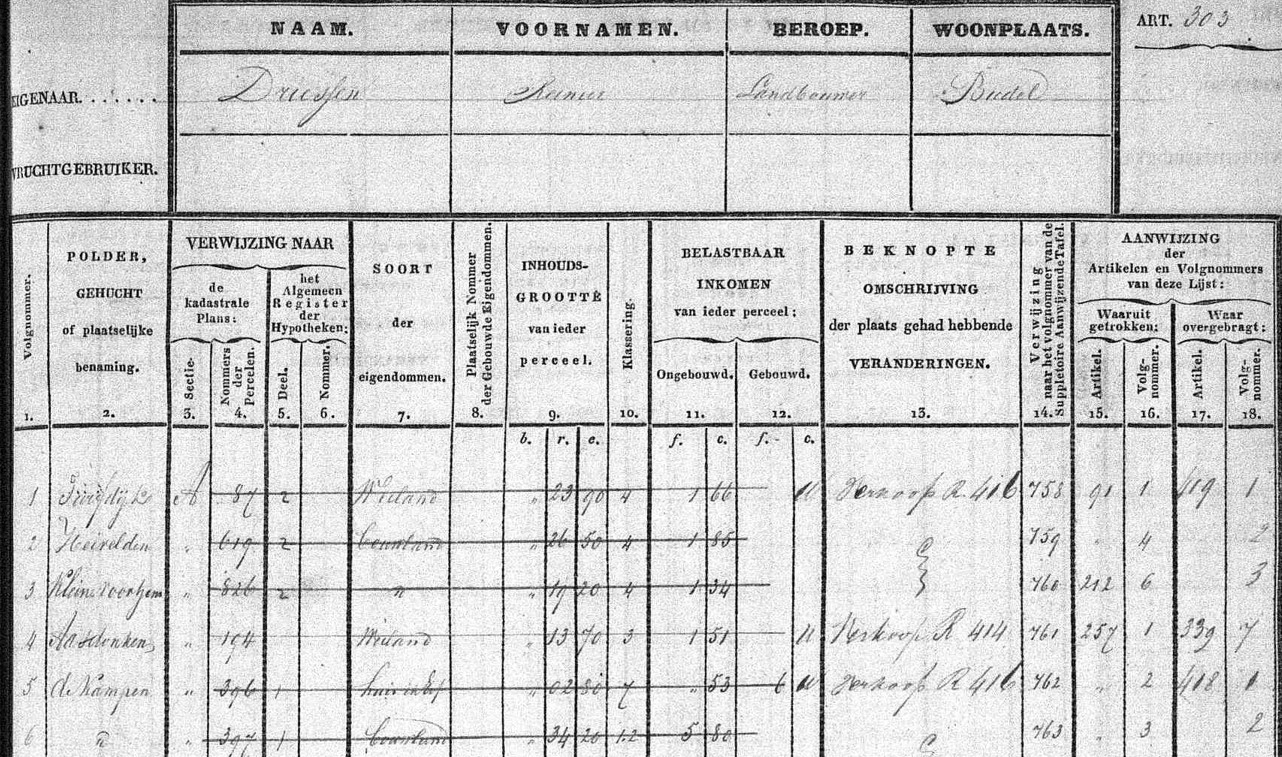 NAAM. VOORNAMEN. BEROEP. WOONPLAATS. ART. 303
EIGENAAR. . . . . . . Driessen Reinier Landbouwer Budel
VRUCHTGEBRUIKER.
Volgnommer. 1.
POLDER, GEHUCHT of plaatselijke benaming. 2.
VERWIJZING NAAR
de kadastrale Plans:
Sectie- 3.
Nommers der Percelen. 4.
het Algemeen Register der Hypotheken:
Deel. 5.
Nommer. 6.
SOORT der eigendommen. 7.
Plaatselijk Nomer der Gebouwde Eigendommen. 8.
INHOUDS-GROOTTE van ieder perceel. 9.
Klassering. 10.
BELASTBAAR INKOMEN van ieder perceel;
Ongebouwd. 11.
Gebouwd. 12.
BEKNOPTE OMSCHRIJVING der plaats gehad hebbende VERANDERINGEN. 13.
Verwijzing naar het volgnommer van de Suppletoire Aanwijzende Tafel. 14.
AANWIJZING der Artikelen en Volgnommers van deze Lijst:
Waaruit getrokken:
Artikel. 15.
Volg-nommer. 16.
Waar overgebragt:
Artikel. 17.
Volg-nommer. 18.
b. r. e. f. c. f. c.
1 A 87 2 Weiland " 23 90 4 1 66 Verkoop R. 416 758 91 1 419 1
2 Heivelden " 619 2 bouwland " 26 50 4 1 85 759 " 4 2
3 " 826 2 " " 19 20 4 1 34 760 212 6 3
4 " 194 Weiland " 13 70 3 1 51 Verkoop R 414 761 257 1 339 7
5 de Kampen " 396 1 huis en Erf " 02 80 7 " 53 6 Verkoop R 416 762 " 2 418 1
6 " " 397 1 bouwland " 34 20 1.2 5 80 763 " 3 2